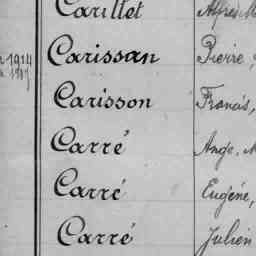 Carillet Alfred M
1914 Carissan Pierre,
Carisson Francis,
Carré Ange, M
Carré Eugène,
Carré Julien